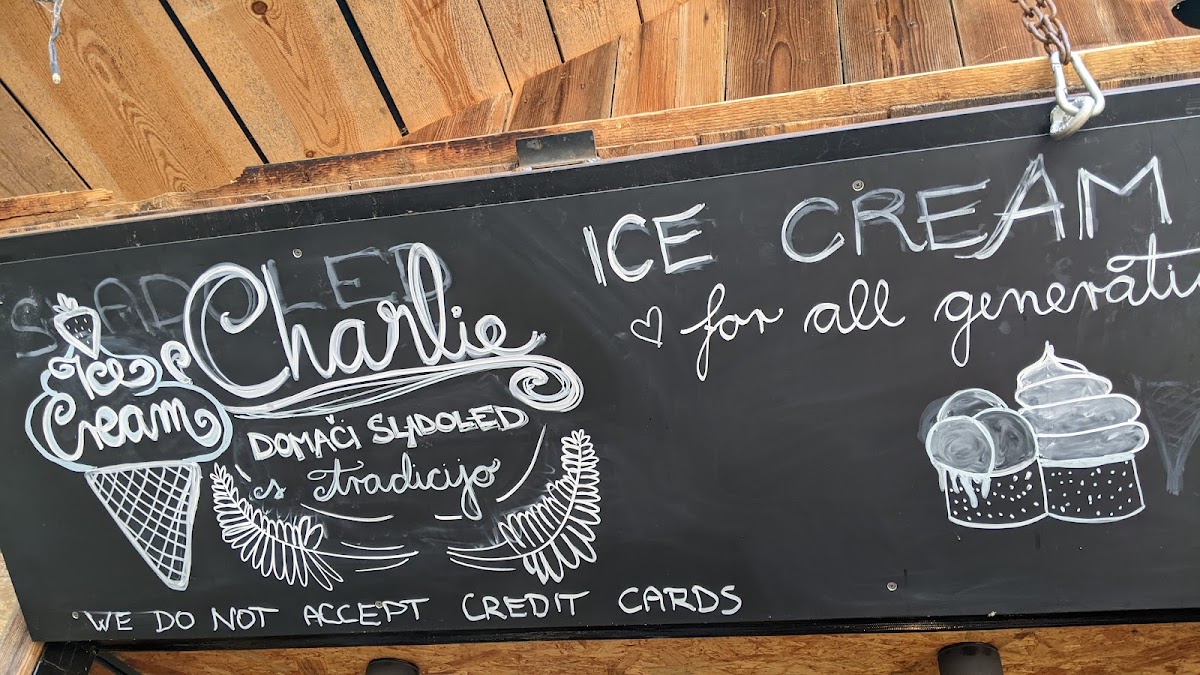 SLADOLED
Ice Cream
Charlie
DOMAČI SLADOLED
s tradicijo
WE DO NOT ACCEPT CREDIT CARDS
ICE CREAM
for all generati